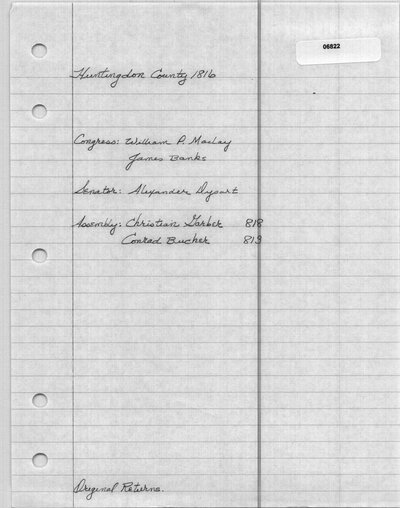 06822
Huntingdon County 1816
Congress: William P. Maclay
James Banks
Senator: Alexander Dysart
Assembly: Christian Garber 818
Conrad Bucher 813
Original Returns.